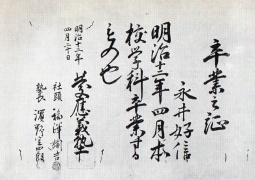 卒業之証
永井好信
明治十三年四月本
校学科卒業する
もの也
明治十三年
四月二十日
慶應義塾
社頭 福澤諭吉
塾長 濱野定四郎